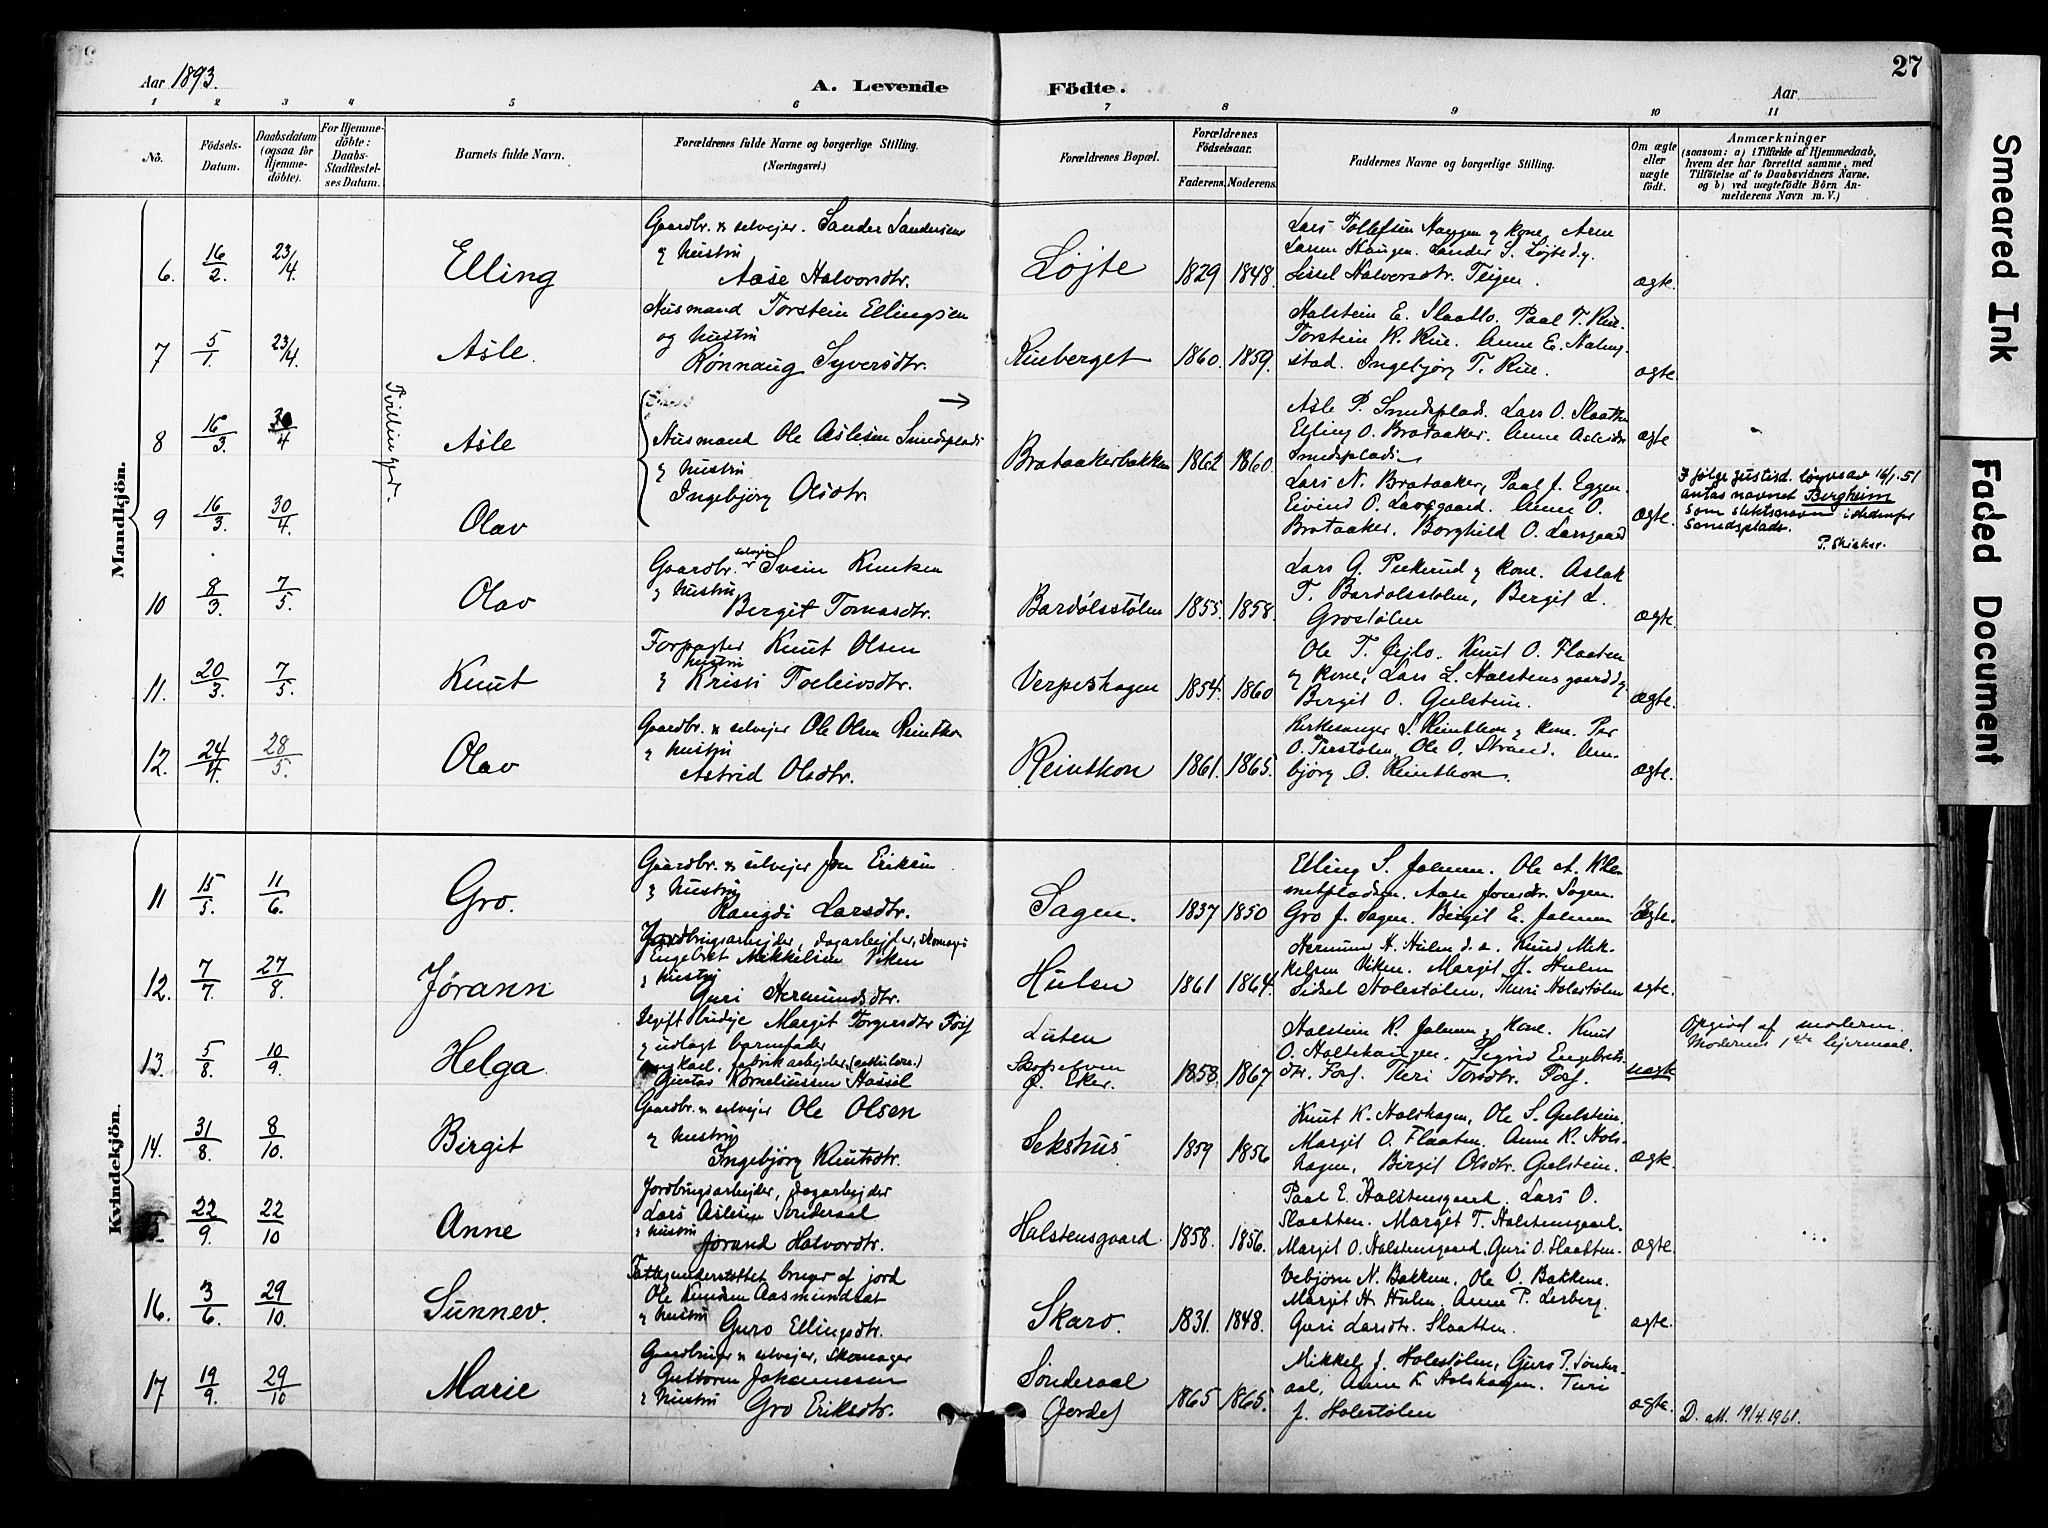 27
Aar 1893.
A. Levende Födte.
Aar
1 2 3 4 5 6 7 8 9 10 11
No.
Födsels-Datum.
Daabsdatum (ogsaa for Hjemme-döbte).
For Hjemme-döbte: Daabs-Stadfæstel-ses Datum.
Barnets fulde Navn.
Forældrenes fulde Navne og borgerlige Stilling. (Næringsvei.)
Forældrenes Bopæl.
Forældrenes Födselsaar.
Faderens. Moderens.
Faddernes Navne og borgerlige Stilling.
Om ægte eller uægte født.
Anmærkninger
(saasom: a) i Tilfælde af Hjemmedaab,
hvem der har forrettet samme, med
Tilföielse af to Daabsvidners Navne,
og b) ved uægtefödte Börn An-
melderens Navn m. V.)
Mandkjön.
6. 16/2. 23/4. Elling
Gaardbr. & selvejer. Sander Sandersen
& hustru
Aase Halvorsdtr.
Løjte 1829 1848.
Lars Tollefsen Haugen & kone. Arne
Larsen Haugen. Sander S. Løjte d.y.
Sissel Halvorsdtr. Teigen.
ægte.
7 5/1. 23/4. Asle.
Husmand Torstein Ellingsen
og hustru
Rønnaug Syversdtr.
Rueberget 1860. 1859.
Halstein E. Slaatto. Paal T. Rue.
Torstein K. Rue. Anne E.
stad. Ingebjørg T. Rue.
ægte
Tvillinger.
8 16/3. 30/4 Asle
Husmand Ole Aslesen Smedsplads
& hustru
Ingebjørg Olsdtr.
Brataakerbakken 1862 1860.
Asle P. Smedsplads. Lars O. Slaatten
Elling O. Brataaker. Anne Aslesdtr
Smedsplads.
ægte
9 16/3. 30/4. Olav
Lars N. Brataaker, Paal J. Eggen.
Eivind O. Larsgaard. Anne O.
Brataaker. Borghild O. Larsgaard
ægte.
I følge justisd. løyve av 16/1. 51
antas navnet Bergheim
som slektsnavn istedenfor
Smedsplads.
10 8/3. 7/5. Olav
Gaardbr. & selvejer Svein Knutsen
& hustru
Birgit Tomasdtr.
Bardølsstølen 1855. 1858.
Lars G. Pukerud & kone. Aslak
T. Bardølsstølen, Bergit L.
Grostølen
ægte.
11. 20/3. 7/5. Knut
Forpagter Knut Olsen
& hustru Kristi Tolleivsdtr.
Verpeshagen 1854. 1860
Ole T. Jejlo. Knut O. Flaaten
& kone, Lars L. Halstensgaard d.y.
Birgit O. Gulstein.
ægte.
12. 24/4. 28/5. Olav
Gaardbr. & selvejer Ole Olsen Reinton
& hustru
Astrid Olsdtr.
Reinton 1861. 1865.
Kirkesanger S. Reinton & kone. Per
O. Ole O. Strand. Ann-
bjørg O. Reinton.
ægte.
Kvindekjön.
11 15/5. 11/6. Gro.
Gaardbr. & selvejer Jon Eriksen
& hustru
Rangdi Larsdtr.
Sagen. 1837 1850
Elling S. Jalmen. Ole A. Kle-
metpladsen. Aase Jonsdtr. Sagen.
Gro J. Sagen. Birgit E. Jalmen
ægte.
12. 7/7. 27/8. Jørann
Jordbrugsarbejder, dagarbejder, skomager
Engebret Mikkelsen Viken
& hustru
Guri Hermundsdtr.
Hulen 1861 1864.
Hermund H. Hulen d.e. Knud Mik-
kelsen Viken. Margit H. Hulen
Sidsel Holestølen, Turi Holestølen
ægte.
13. 5/8. 10/9. Helga.
Ugift budeje Margit Torgersdtr Foss
& udlagt barnefader
ungkarl, fabrikarbejder
Gustav Korneliussen Hassel
Luten
Ø. Eker. 1858. 1867
Halstein K. Jalmen & kone. Knut
O. Holtehaugen. Sigrid Engebrets-
dtr. Foss. Turi Torsdtr. Foss.
uægte
Opgivet af moderen.
Moderens 1ste lejermaal.
14. 31/8. 8/10. Birgit
Gaardbr. & selvejer Ole Olsen
& hustru
Ingebjørg Knutsdtr.
Sekshus 1859 1856
Knut K. Holshagen, Ole S. Gulstein.
Margit O. Flaaten. Anne K. Hols-
hagen, Birgit Olsdtr. Gulstein.
ægte.
15. 22/9. 22/10 Anne
Jordbrugsarbejder, dagarbejder
Lars Aslesen Sønderaal
& hustru Jørand Halvordtr.
Halstensgaard. 1858. 1856.
Paal E. Halstensgaard. Lars O.
Slaatten. Margit T. Halstensgaard.
Margit O. Halstensgaard, Guri O. Slaatten.
ægte.
16. 3/6. 29/10. Sunnev.
Fattigunderstøttet bruger af jord
Ole Knudsen Aasmundsat
& hustru
Guro Ellingsdtr.
Skaro. 1831. 1848.
Vebjørn N. Bakken, Ole V. Bakkene.
Margit H. Hulen. Anne P. Lerberg.
Guri Larsdtr. Slaatten.
ægte.
17 19/9. 29/10 Marie
Gaardbruger & selvejer, skomager
Guttorm Johannessen
& hustru Gro Eriksdtr.
Sønderaal
(Jordet) 1865 1865.
Mikkel J. Holestølen, Guro P. Sønder-
aal, Anne K. Holshagen. Turi
J. Holestølen
ægte.
D. all. 19/4. 1961.
Smeared Ink
Faded Document